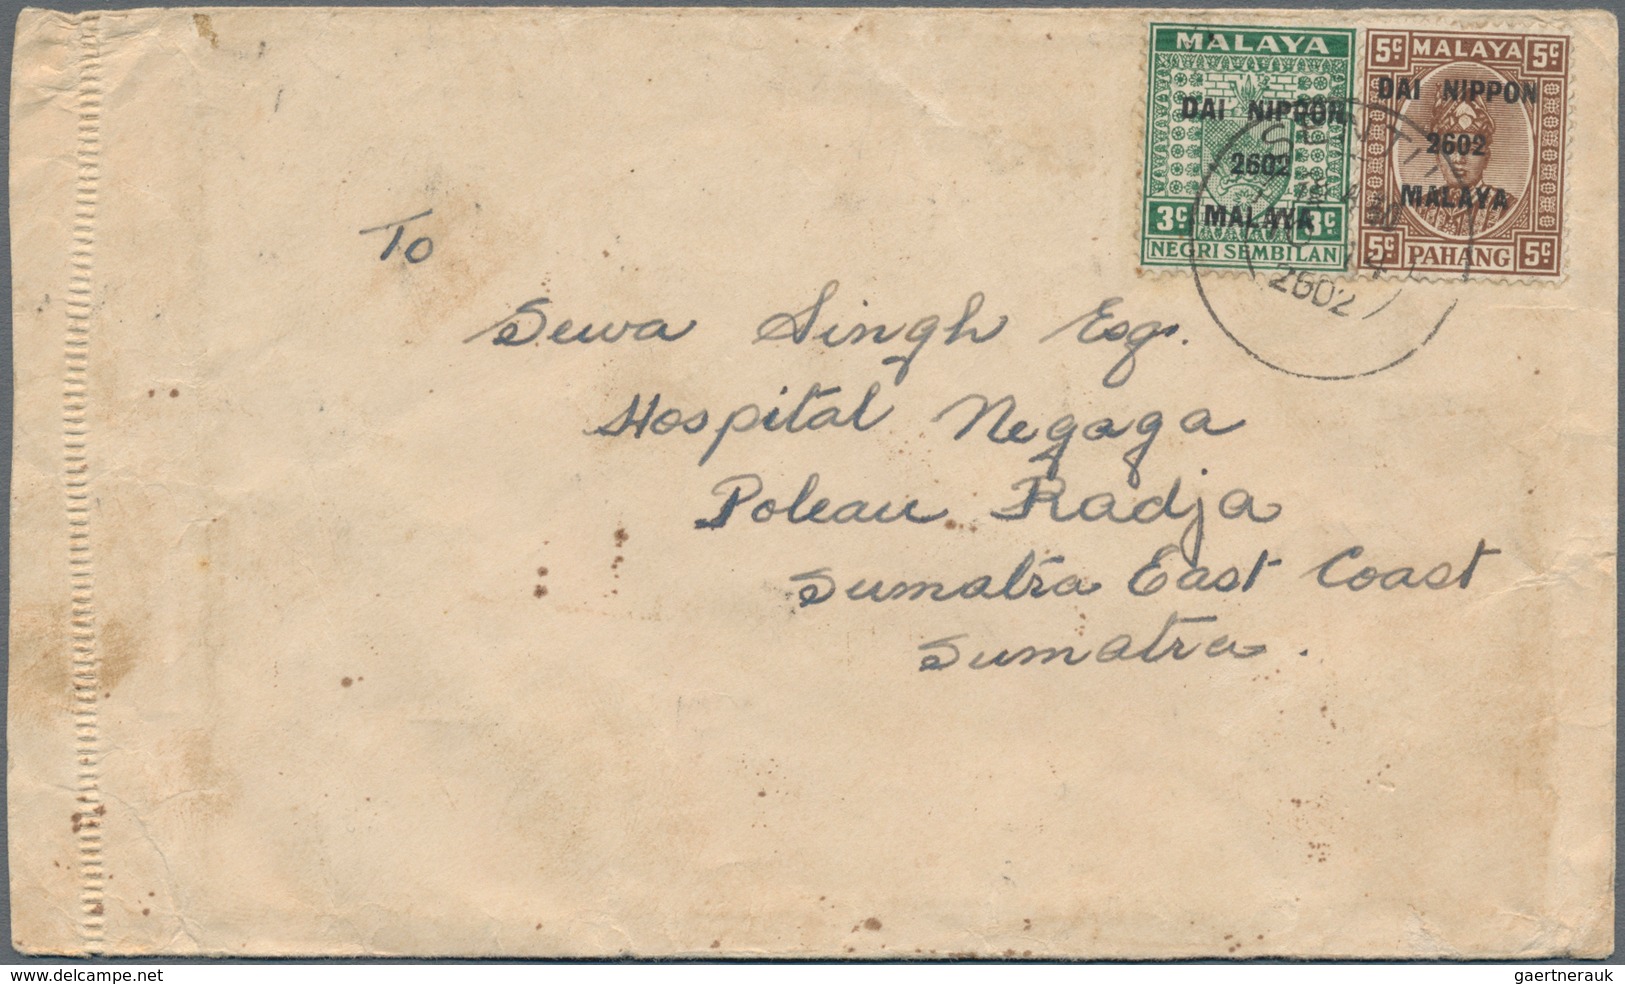 MALAYA
DAI NIPPON
2602
MALAYA
3c 3c
NEGRI SEMBILAN
5c MALAYA 5c
DAI NIPPON
2602
MALAYA
5c PAHANG 5c
2602
To
Sewa Singh Esq.
Hospital Negaga
Poleau Radja
Sumatra East Coast
Sumatra.
www.delcampe.net
gaertnerauk